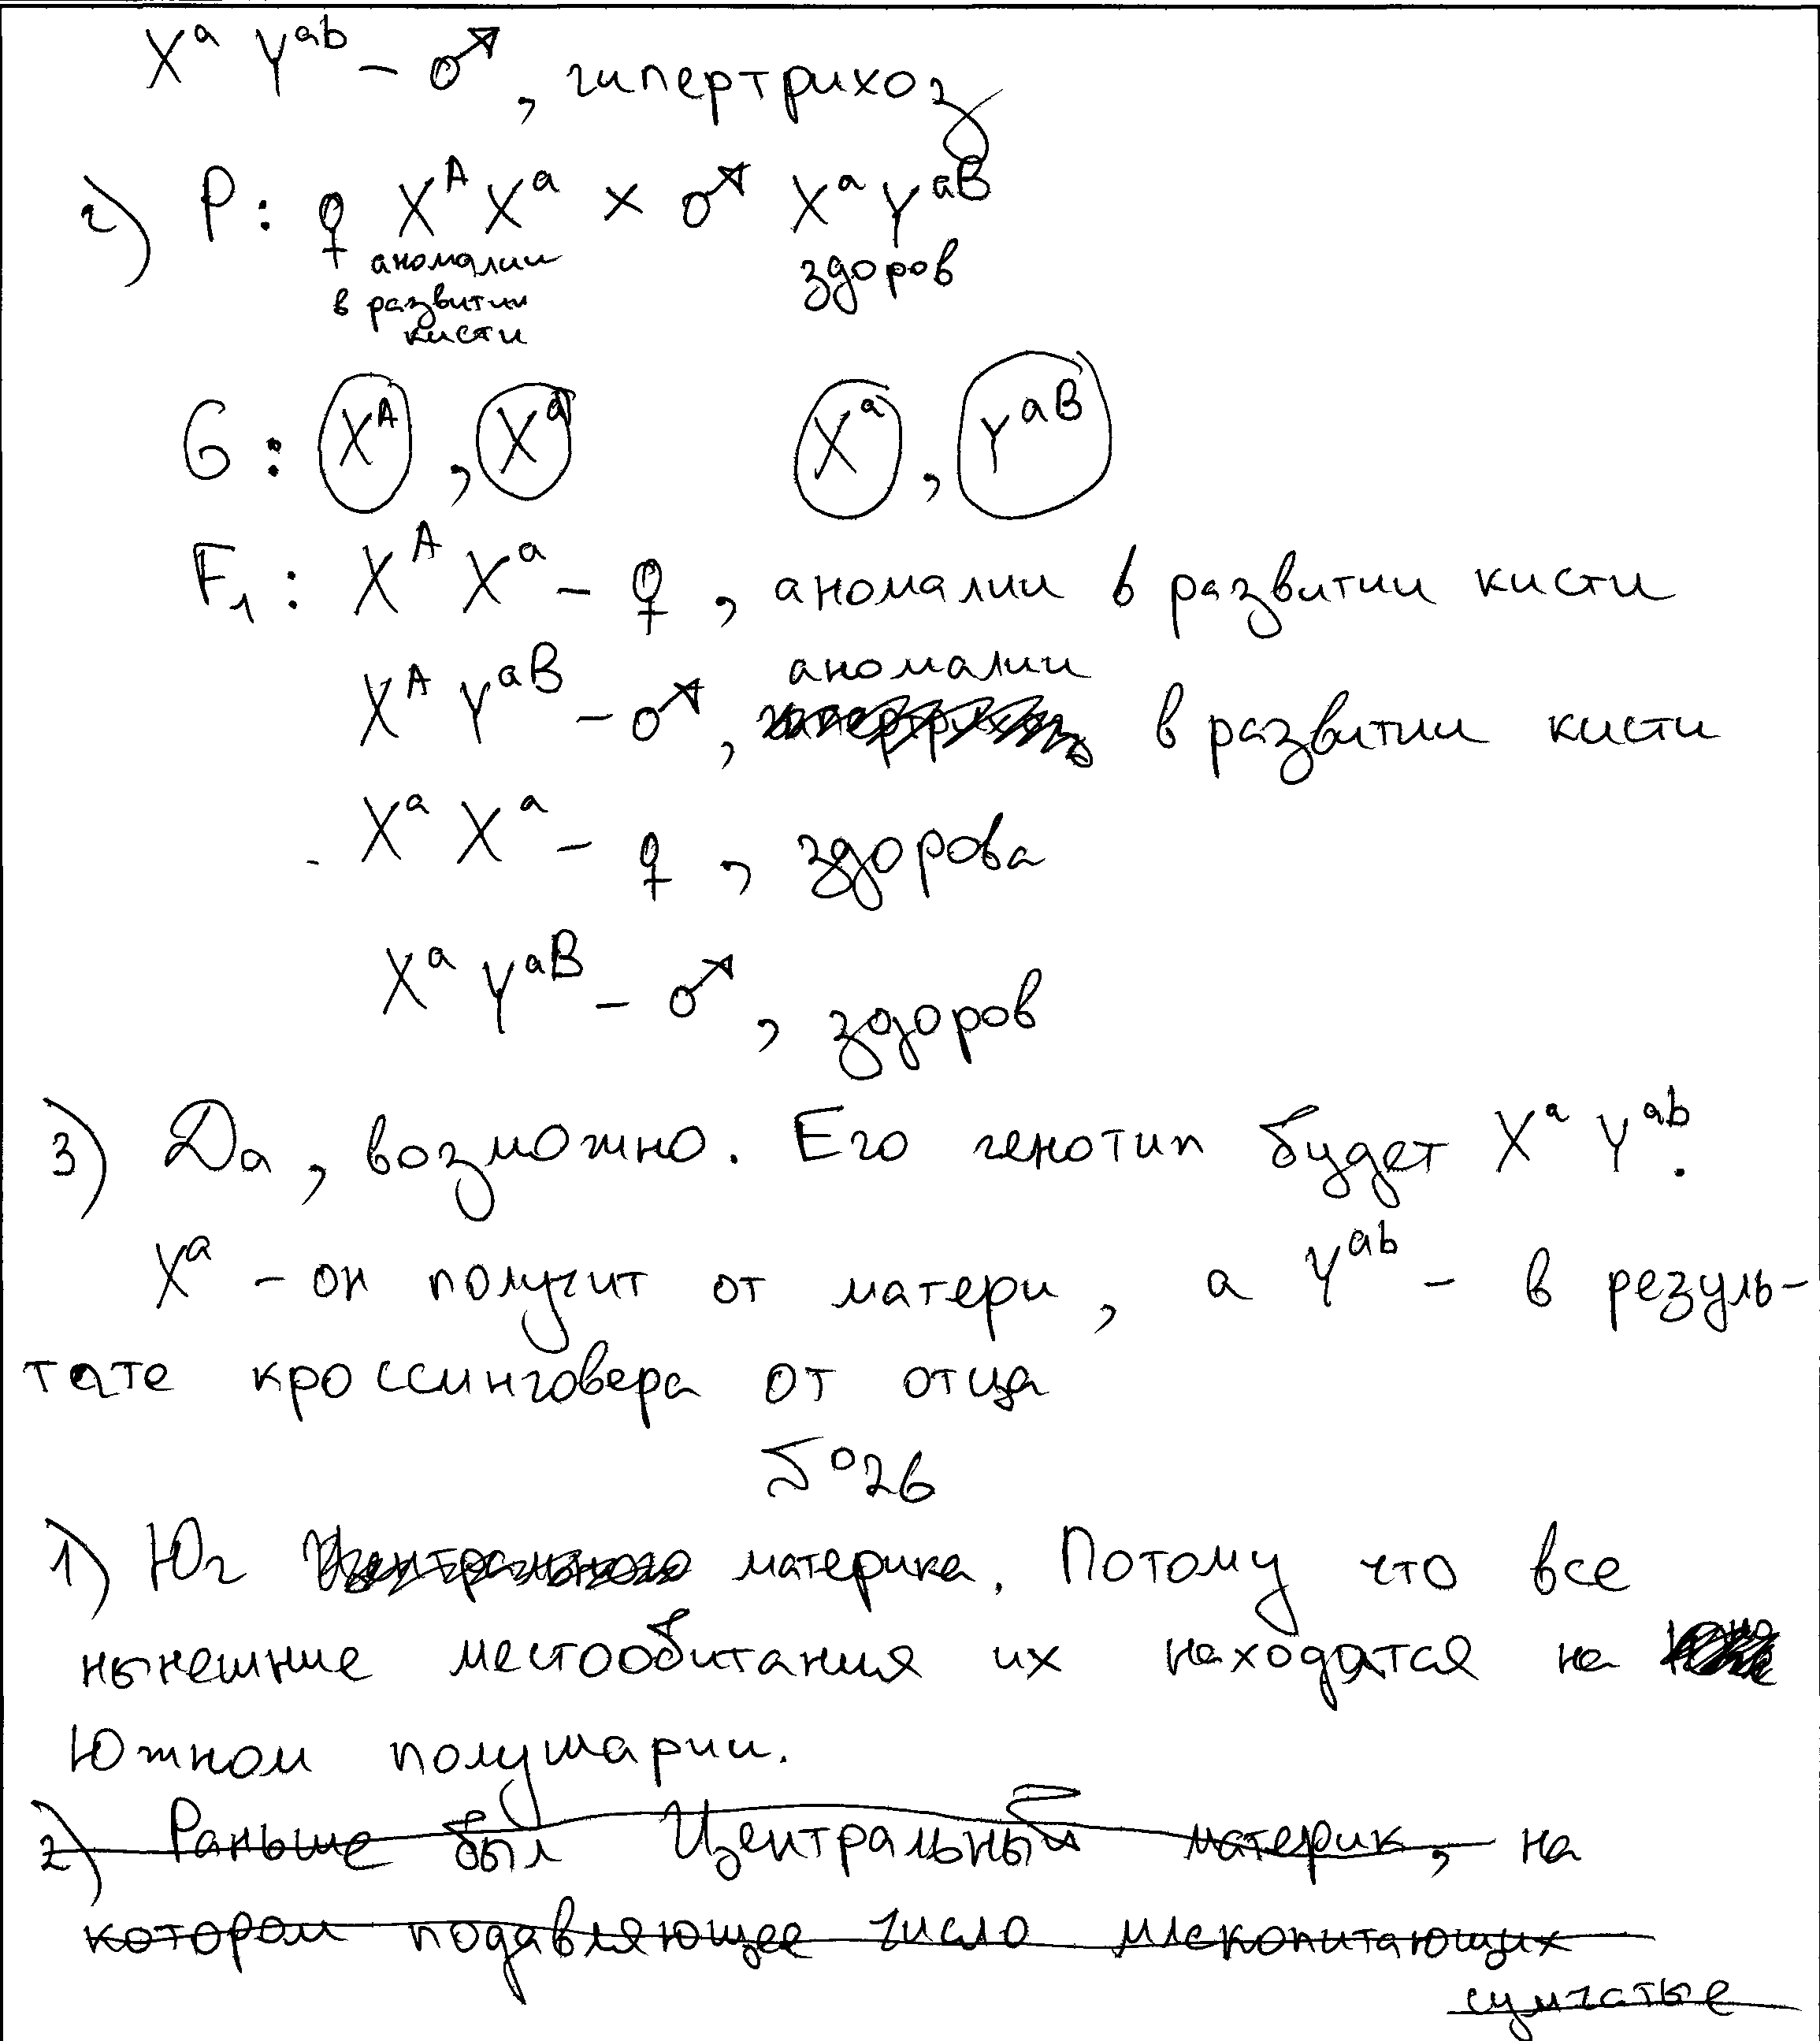 Xᵃ Yᵃᵇ – ♂, гипертрихоз
2) P: ♀ Xᴬ Xᵃ × ♂ Xᵃ Yᵃᴮ
аномалии здоров
в развитии
кисти
G: Xᴬ, Xᵃ Xᵃ, Yᵃᴮ
F₁: Xᴬ Xᵃ – ♀, аномалии в развитии кисти
аномалии
Xᴬ Yᵃᴮ – ♂, в развитии кисти
Xᵃ Xᵃ – ♀, здорова
Xᵃ Yᵃᴮ – ♂, здоров
3) Да, возможно. Его генотип будет Xᵃ Yᵃᵇ.
Xᵃ – он получит от матери, а Yᵃᵇ – в резуль-
тате кроссинговера от отца
№26
1) Юг материка. Потому что все
нынешние местообитания их находятся на
Южном полушарии.
2) Раньше был Центральный материк, на
котором подавляющее число млекопитающих
сумчатые